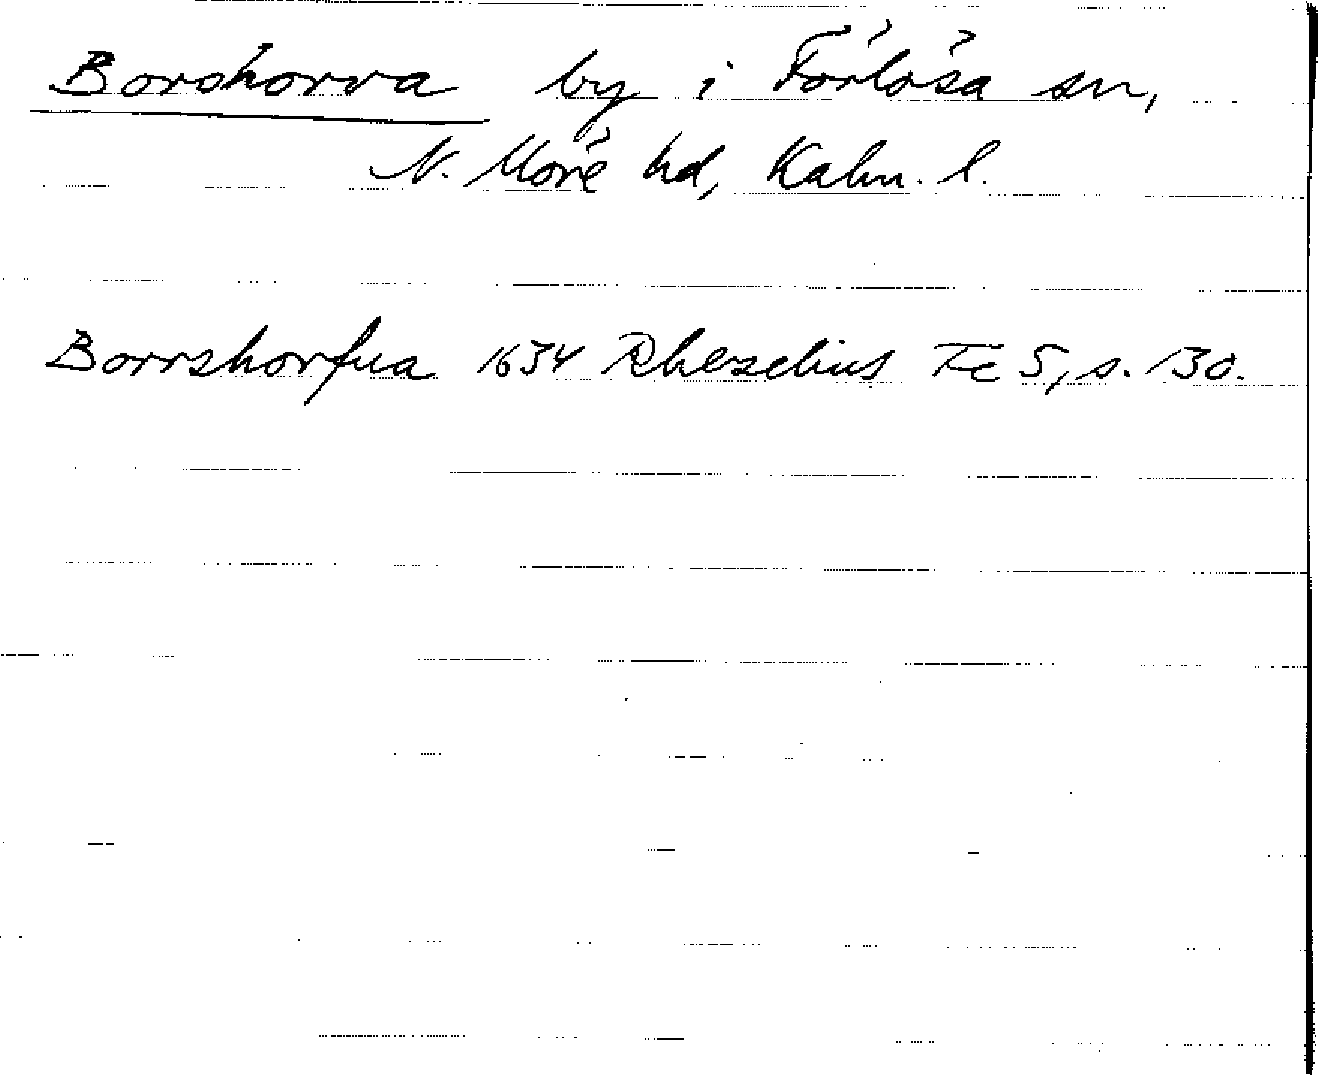 Borshorva by i Förlösa sn,
N. Möre hd, Kalm. l.
Borrshorfua 1634 Rhezelius Fc 5, s. 130.